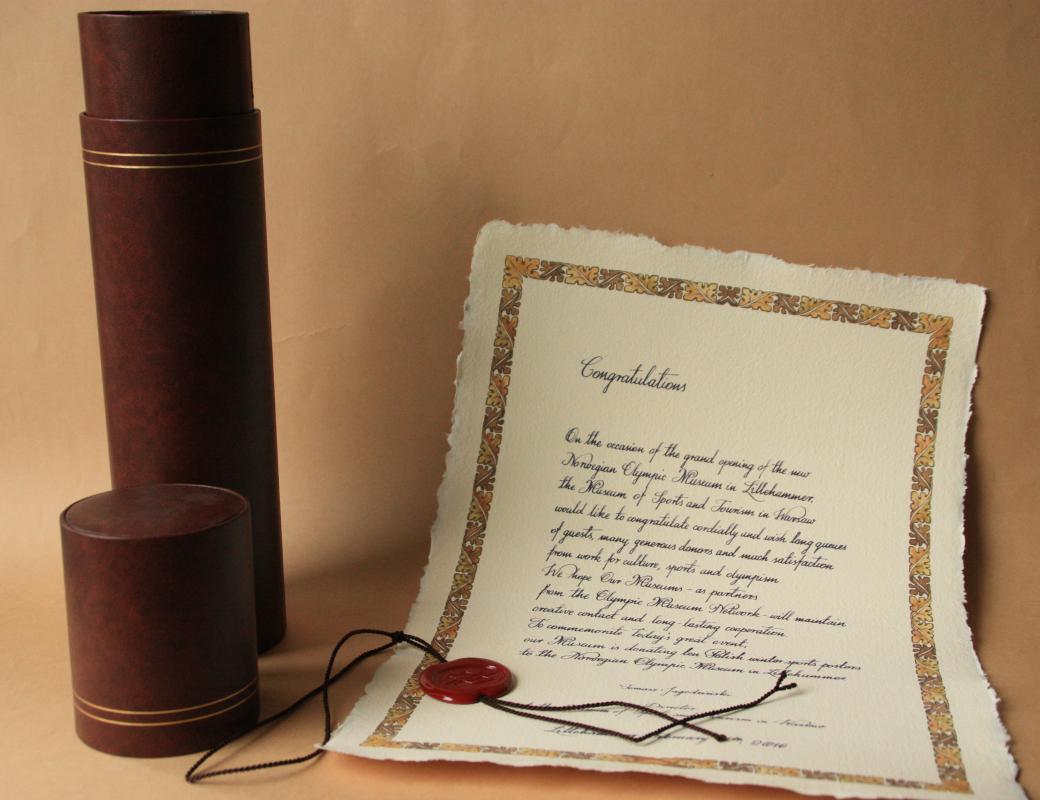 Congratulations
On the occasion of the grand opening of the new
Norvegian Olympic Museum in Lillehammer,
the Museum of Sports and Tourism in Warsaw
would like to congratulate cordially and wish long queues
of guests, many generous donors and much satisfaction
from work for culture, sports and olympism
We hope Our Museums - as partners
from the Olympic Museum Network - will maintain
creative contact and long-lasting cooperation.
To commemorate today's great event,
our Museum is donating ten Polish winter sports posters
to the Norvegian Olympic Museum in Lillehammer
Tomasz Jagodziński
Director
in Warsaw
2016